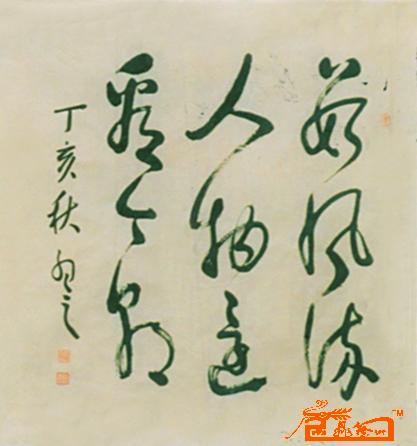 数风流
人物还
看今朝
丁亥秋